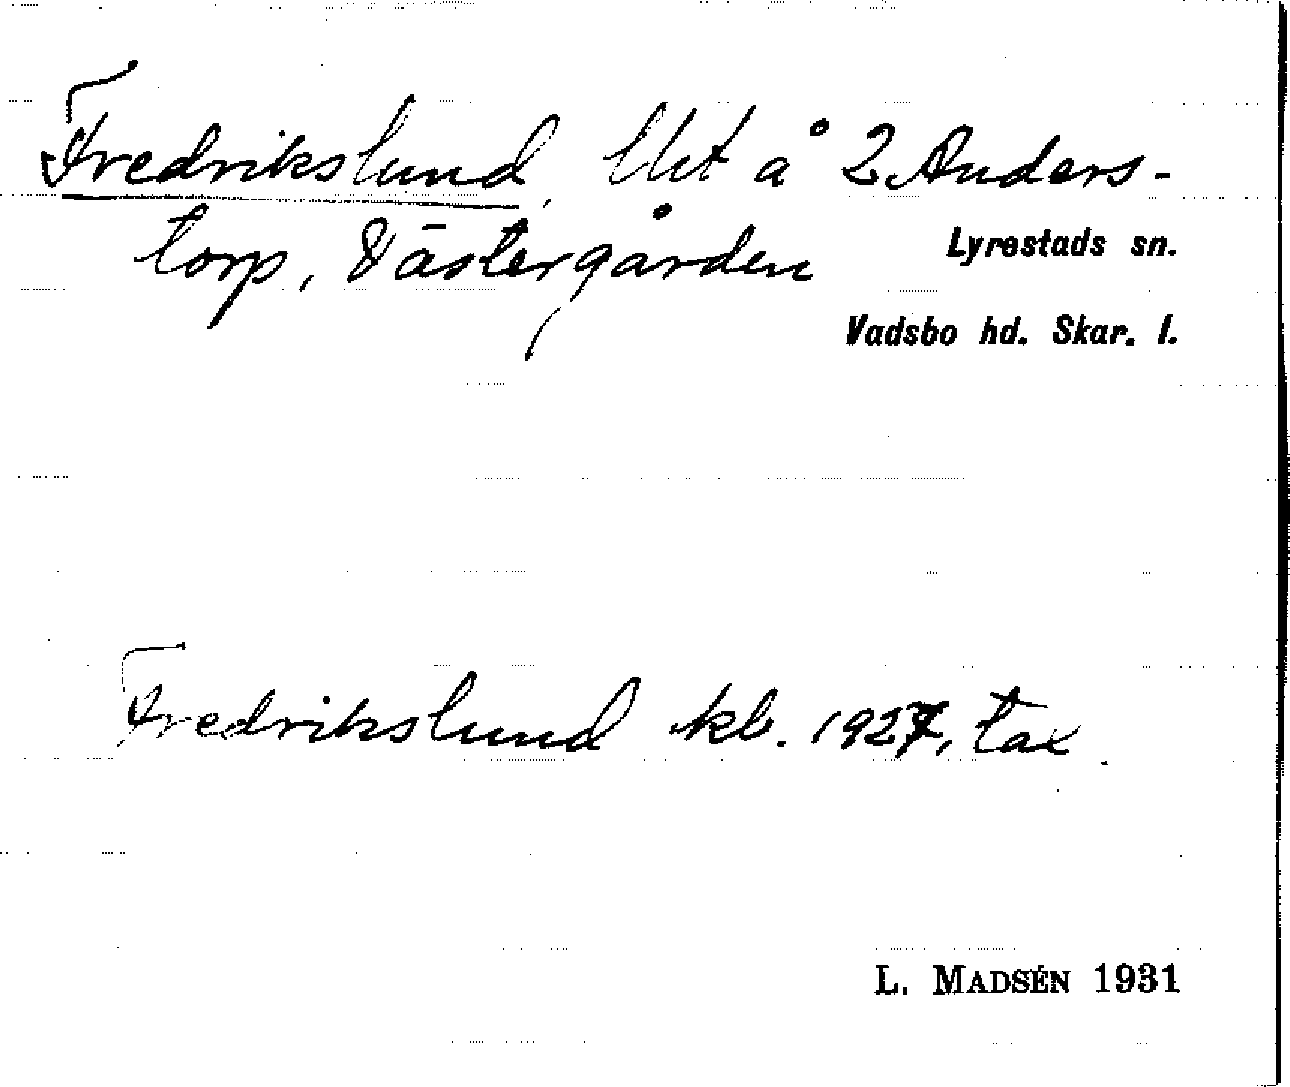 Fredrikslund, lht å 2 Anders-
torp, Västergården
Lyrestads sn.
Vadsbo hd. Skar. l.
Fredrikslund kb. 1927, tax.
L. MADSÉN 1931